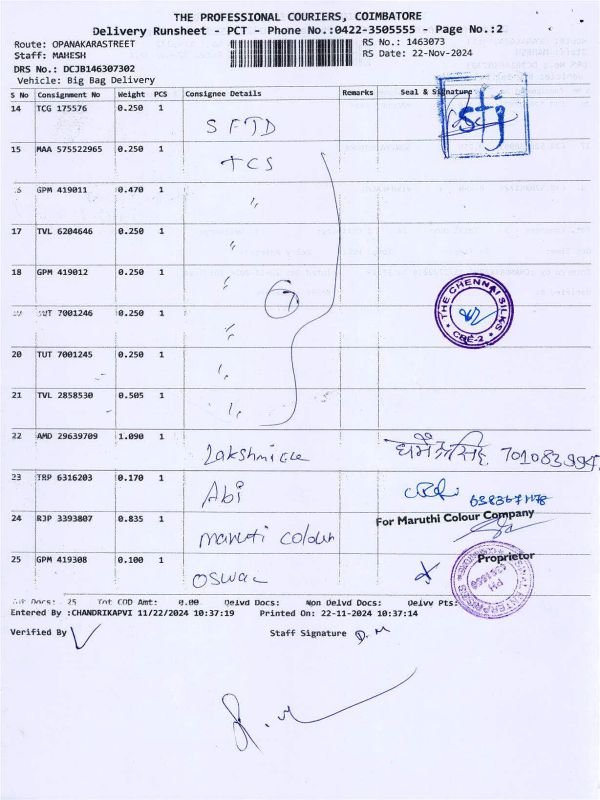 THE PROFESSIONAL COURIERS, COIMBATORE
Delivery Runsheet - PCT - Phone No.:0422-3505555 - Page No.:2
Route: OPANAKARASTREET RS No.: 1463073
Staff: MAHESH RS Date: 22-Nov-2024
DRS No.: DCJB146307302
Vehicle: Big Bag Delivery
S No Consignment No Weight PCS Consignee Details Remarks Seal & Signature
14 TCG 175576 0.250 1 SFTD stj
15 MAA 575522965 0.250 1 TCS
GPM 419011 0.470 1 "
17 TVL 6204646 0.250 1 "
18 GPM 419012 0.250 1 "
7
TUT 7001246 0.250 1 "
THE CHENNAI SILKS
CBE-2
20 TUT 7001245 0.250 1 "
21 TVL 2858530 0.505 1 "
22 AMD 29639709 1.090 1 Lakshmi
23 TRP 6316203 0.170 1 Abi
24 RJP 3393807 0.835 1 maruti colour For Maruthi Colour Company
25 GPM 419308 0.100 1 oswal Proprietor
Docs: 25 Tot COD Amt: 0.00 Delvd Docs: Non Delvd Docs: Delvv Pts:
Entered By :CHANDRIKAPVI 11/22/2024 10:37:19 Printed On: 22-11-2024 10:37:14
Verified By Staff Signature D.M